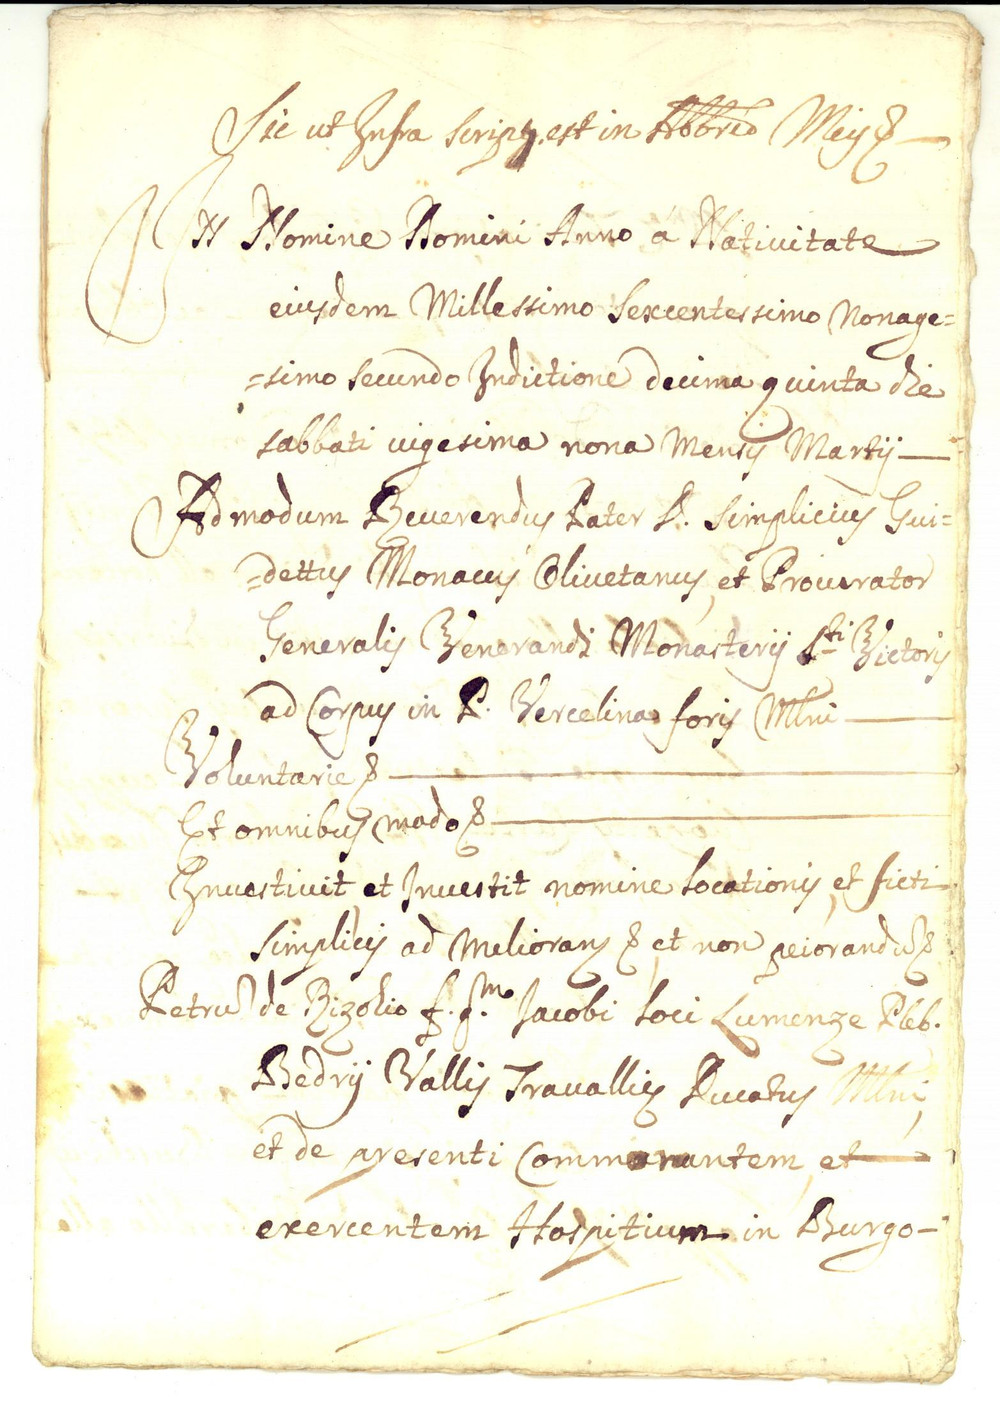 Sic ut Infra script. est in Abbrẽ Meis &
IN Nomine Domini Anno à Nativitate
eiusdem Millessimo Sexcentessimo Nonage=
=simo secundo Indictione decima quinta die
sabbati vigesima nona Mensis Martij
Admodum Reverendus Pater D. Simplicius Gui=
=dettus Monacus Olivetanus, et Procurator
Generalis Venerandi Monasterij Sti Victoris
ad Corpus in P. Vercelina foris Mlni
Voluntarie &
Et omnibus modo &
Investivit, et Investit nomine locationis, et ficti
simplicis ad Meliorans &, et non peiorandũ &
Petrũ de Rizolio f. q.m Jacobi loci Lumenze Pleb.
Bedrij Vallis Travallie Ducatus Mlni,
et de presenti Commorantem, et
exercentem Hospitium in Burgo